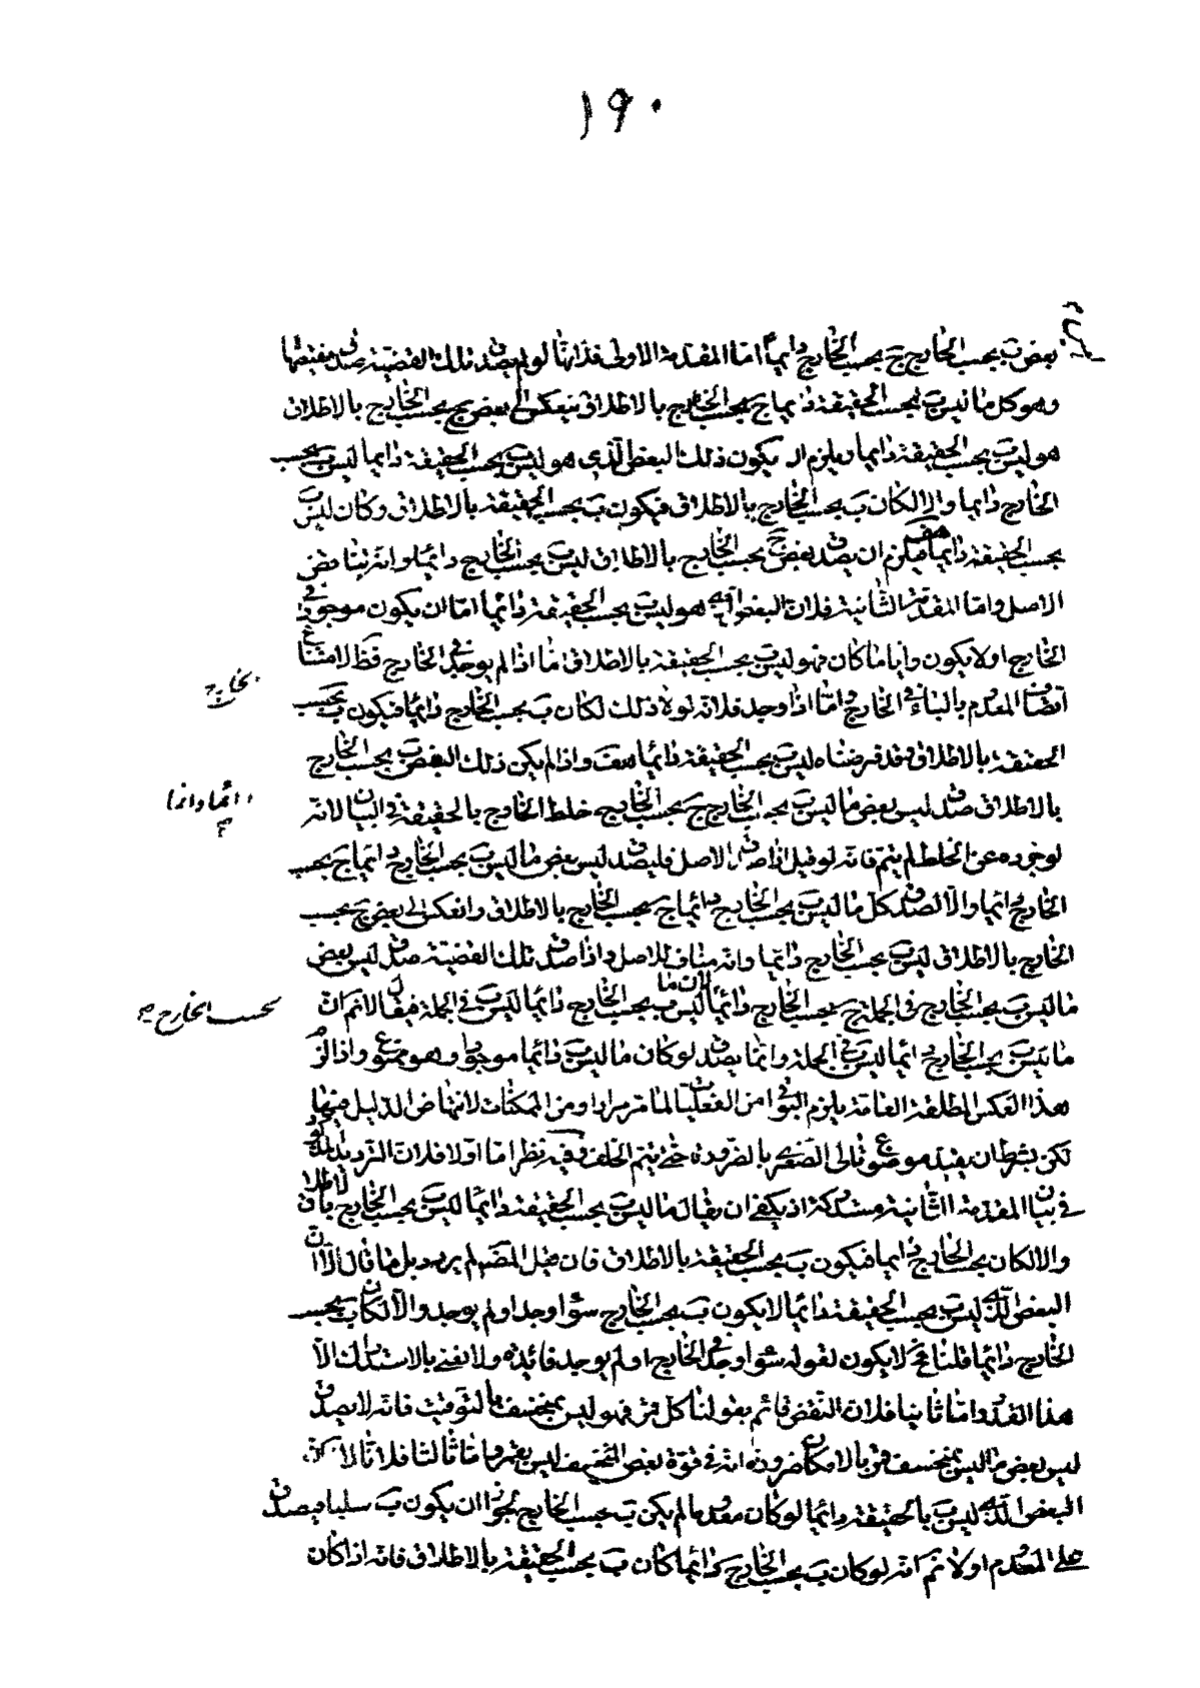 ١٩٠
بعض ب بحسب الخارج ج بحسب الخارج دائماً امّا المقدمة الاولى فلانها لو لم يصدق تلك القضيّة صدق نقيضها
وهو كل ما ليس ب بحسب الحقيقة دايما ج بحسب الخارج بالاطلاق ينعكس الى بعض ج بحسب الخارج بالاطلاق
هو ليس ب بحسب الحقيقة دايما ويلزم ان يكون ذلك البعض الذى هو ليس ب بحسب الحقيقة دايما ليس ب بحسب
الخارج دايما والا لكان ب بحسب الخارج بالاطلاق فيكون ب بحسب الحقيقة بالاطلاق وكان ليس ب
بحسب الحقيقة دايما هف فيلزم ان يصدق بعض ج بحسب الخارج بالاطلاق ليس ب بحسب الخارج دائما وانه يناقض
الاصل وامّا المقدمة الثانية فلان البعض الذى هو ليس ب بحسب الحقيقة دائما امّا ان يكون موجودا فى
الخارج اولا يكون وايا ما كان فهو ليس ب بحسب الحقيقة بالاطلاق امّا اذا لم يوجد فى الخارج فظ لامتناع
اتصاف المعدوم بالباء فى الخارج وامّا اذا وجد فلانه لولا ذلك لكان ب بحسب الخارج دائما فيكون ب بحسب
بخارج
الحقيقة بالاطلاق وقد فرضناه ليس ب بحسب الحقيقة دائما هف واذا لم يكن ذلك البعض ب بحسب الخارج
بالاطلاق صدق ليس بعض ما ليس ب بحسب الخارج ج بحسب الخارج خلط الخارج بالحقيقة فى البيان لانه
دائما واذا
لو جرده عن الخلط لم يتم فانه لو قيل اذا صدق الاصل فليصدق ليس بعض ما ليس ب بحسب الخارج دائما ج بحسب
الخارج دائما والّا لصدق كل ما ليس ب بحسب الخارج دائما ج بحسب الخارج بالاطلاق وانعكس الى بعض ج بحسب
الخارج بالاطلاق ليس ب بحسب الخارج دائما وانه مناف للاصل واذا صدق تلك القضيّة صدق ليس بعض
ما ليس ب بحسب الخارج فى الجملة ج بحسب الخارج دائما لان ما ليس ب بحسب الخارج دائما ليس ب فى الجملة فيقال لا نم ان
بحسب الخارج
ما ليس ب بحسب الخارج دائما ليس ب فى الجملة وانما يصدق لو كان ما ليس ب دائما موجودا وهو ممنوع واذا لزم
هذا العكس المطلقة العامّة يلزم البواقى من الفعليات لما مر مرارا ومن الممكنات لانتهاض الدليل فيها
لكن بشرط ان يقيد موضوعها الى الصغرى بالضرورة حتى يتم الخلف وفيه نظر امّا اولا فلان الترديد
فى بيان المقدمة الثانية مستدركة اذ يكفى ان يقال ما ليس ب بحسب الحقيقة دائما ليس ب بحسب الخارج بالاطلاق
والا لكان بحسب الخارج دايما فيكون ب بحسب الحقيقة بالاطلاق فان قيل المصنف لم يردد بل ما قال الّا ان
البعض الذى ليس ب بحسب الحقيقة دائما لا يكون ب بحسب الخارج سواء وجد او لم يوجد والّا لكان ب بحسب
الخارج دائما قلنا فح لا يكون لقوله سواء وجد فى الخارج او لم يوجد فائدة ولا نعنى بالاستدراك الّا
هذا القدر وامّا ثانيا فلان النقض قائم بقولنا كل قمر فهو ليس بمنخسف بالتوقيت فانه لا يصدق
ليس بعض ما ليس بمنخسف قمر بالامكان ضرورة انه فى قوة بعض المنخسف ليس بقمر وامّا ثالثا فلانا لا نم ان
البعض الذى ليس ب بالحقيقة دائما لو كان معدوما لم يكن ب بحسب الخارج لجواز ان يكون ب سلبيا فيصدق
على المعدوم او لا نم انه لو كان ب بحسب الخارج دائما كان ب بحسب الحقيقة بالاطلاق فانه اذا كان